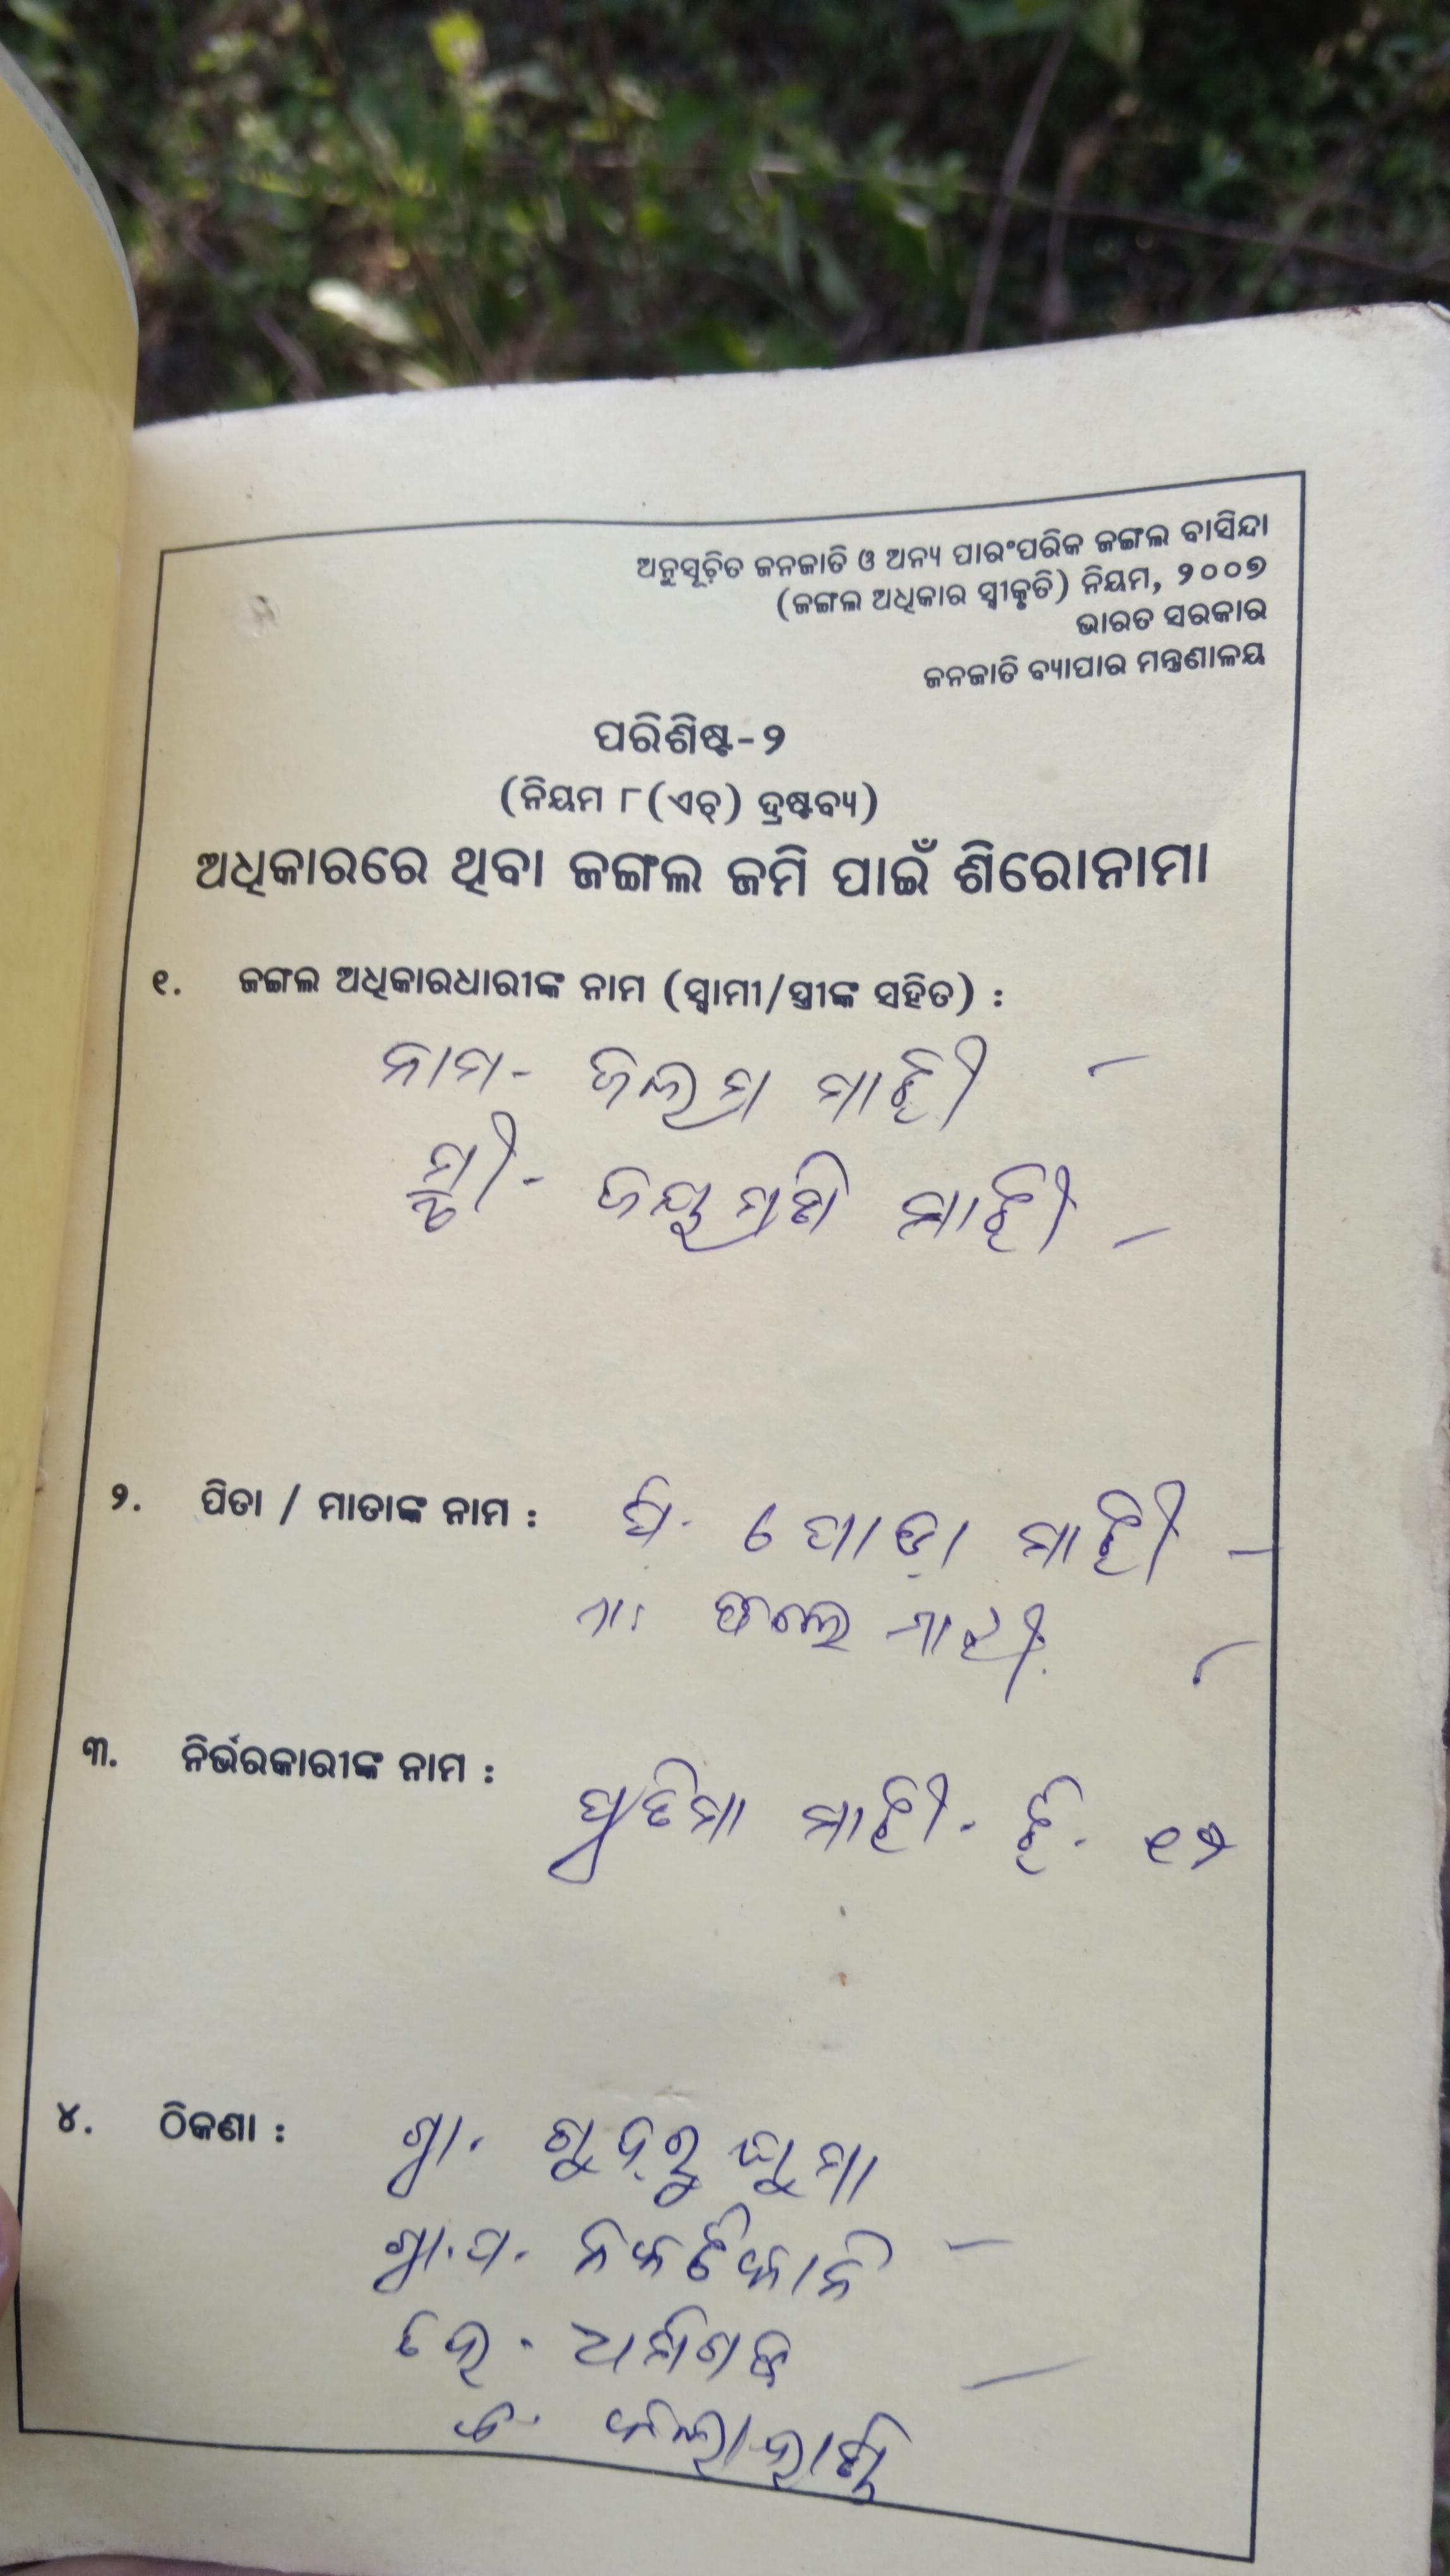 ଅନୁସୂଚିତ ଜନଜାତି ଓ ଅନ୍ୟ ପାରଂପରିକ ଜଙ୍ଗଲ ବାସିନ୍ଦା
(ଜଙ୍ଗଲ ଅଧିକାର ସ୍ୱୀକୃତି) ନିୟମ, ୨୦୦୭
ଭାରତ ସରକାର
ଜନଜାତି ବ୍ୟାପାର ମନ୍ତ୍ରଣାଳୟ
ପରିଶିଷ୍ଟ-୨
(ନିୟମ ୮(ଏଚ୍) ଦ୍ରଷ୍ଟବ୍ୟ)
ଅଧିକାରରେ ଥିବା ଜଙ୍ଗଲ ଜମି ପାଇଁ ଶିରୋନାମା
୧. ଜଙ୍ଗଲ ଅଧିକାରଧାରୀଙ୍କ ନାମ (ସ୍ୱାମୀ/ସ୍ତ୍ରୀଙ୍କ ସହିତ) :
ନାମ- ଜଲମ ମାଝୀ
ସ୍ତ୍ରୀ- ଜୟମଣି ମାଝୀ
୨. ପିତା / ମାତାଙ୍କ ନାମ : ପି. ପୋଡ଼ା ମାଝୀ
ମା: ଫଲେ ମାଝୀ
୩. ନିର୍ଭରକାରୀଙ୍କ ନାମ :
ପ୍ରତିମା ମାଝୀ. ଝି. ୧୨
୪. ଠିକଣା : ଗ୍ରା.
ଗ୍ରା.ପ.